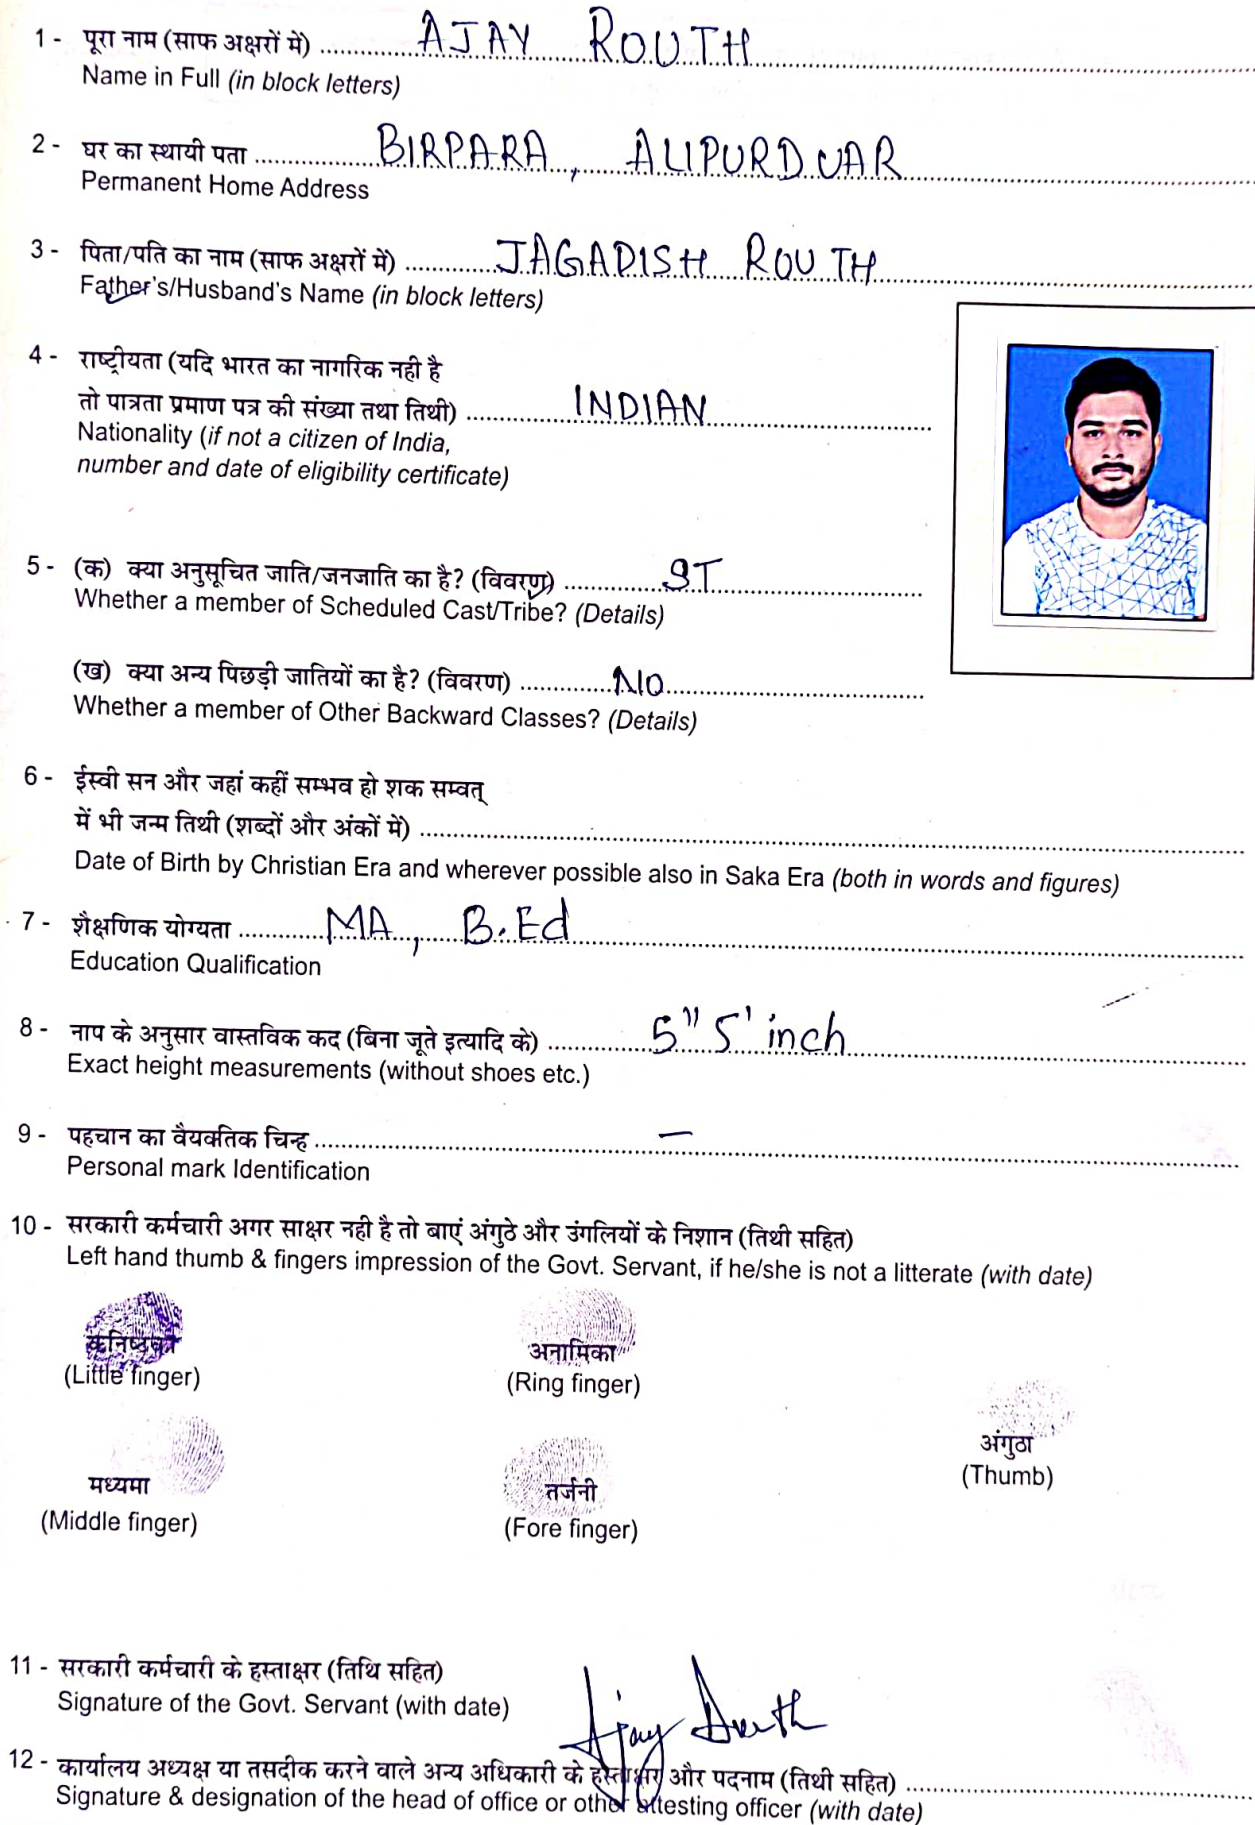 1 - पूरा नाम (साफ अक्षरों में) ............ AJAY ROUTH
Name in Full (in block letters)
2 - घर का स्थायी पता ............ BIRPARA, ALIPURDUAR
Permanent Home Address
3 - पिता/पति का नाम (साफ अक्षरों में) ............ JAGADISH ROUTH
Father's/Husband's Name (in block letters)
4 - राष्ट्रीयता (यदि भारत का नागरिक नही है
तो पात्रता प्रमाण पत्र की संख्या तथा तिथी) ............ INDIAN
Nationality (if not a citizen of India,
number and date of eligibility certificate)
5 - (क) क्या अनुसूचित जाति/जनजाति का है? (विवरण) ............ ST
Whether a member of Scheduled Cast/Tribe? (Details)
(ख) क्या अन्य पिछड़ी जातियों का है? (विवरण) ............ NO
Whether a member of Other Backward Classes? (Details)
6 - ईस्वी सन और जहां कहीं सम्भव हो शक सम्वत्
में भी जन्म तिथी (शब्दों और अंकों में) ............
Date of Birth by Christian Era and wherever possible also in Saka Era (both in words and figures)
7 - शैक्षणिक योग्यता ............ MA, B.Ed
Education Qualification
8 - नाप के अनुसार वास्तविक कद (बिना जूते इत्यादि के) ............ 5" 5' inch
Exact height measurements (without shoes etc.)
9 - पहचान का वैयक्तिक चिन्ह ............ —
Personal mark Identification
10 - सरकारी कर्मचारी अगर साक्षर नही है तो बाएं अंगुठे और उंगलियों के निशान (तिथी सहित)
Left hand thumb & fingers impression of the Govt. Servant, if he/she is not a litterate (with date)
कनिष्ठका अनामिका
(Little finger) (Ring finger)
अंगुठा
(Thumb)
मध्यमा तर्जनी
(Middle finger) (Fore finger)
11 - सरकारी कर्मचारी के हस्ताक्षर (तिथि सहित)
Signature of the Govt. Servant (with date) Ajay Routh
12 - कार्यालय अध्यक्ष या तसदीक करने वाले अन्य अधिकारी के हस्ताक्षर और पदनाम (तिथी सहित) ............
Signature & designation of the head of office or other attesting officer (with date)